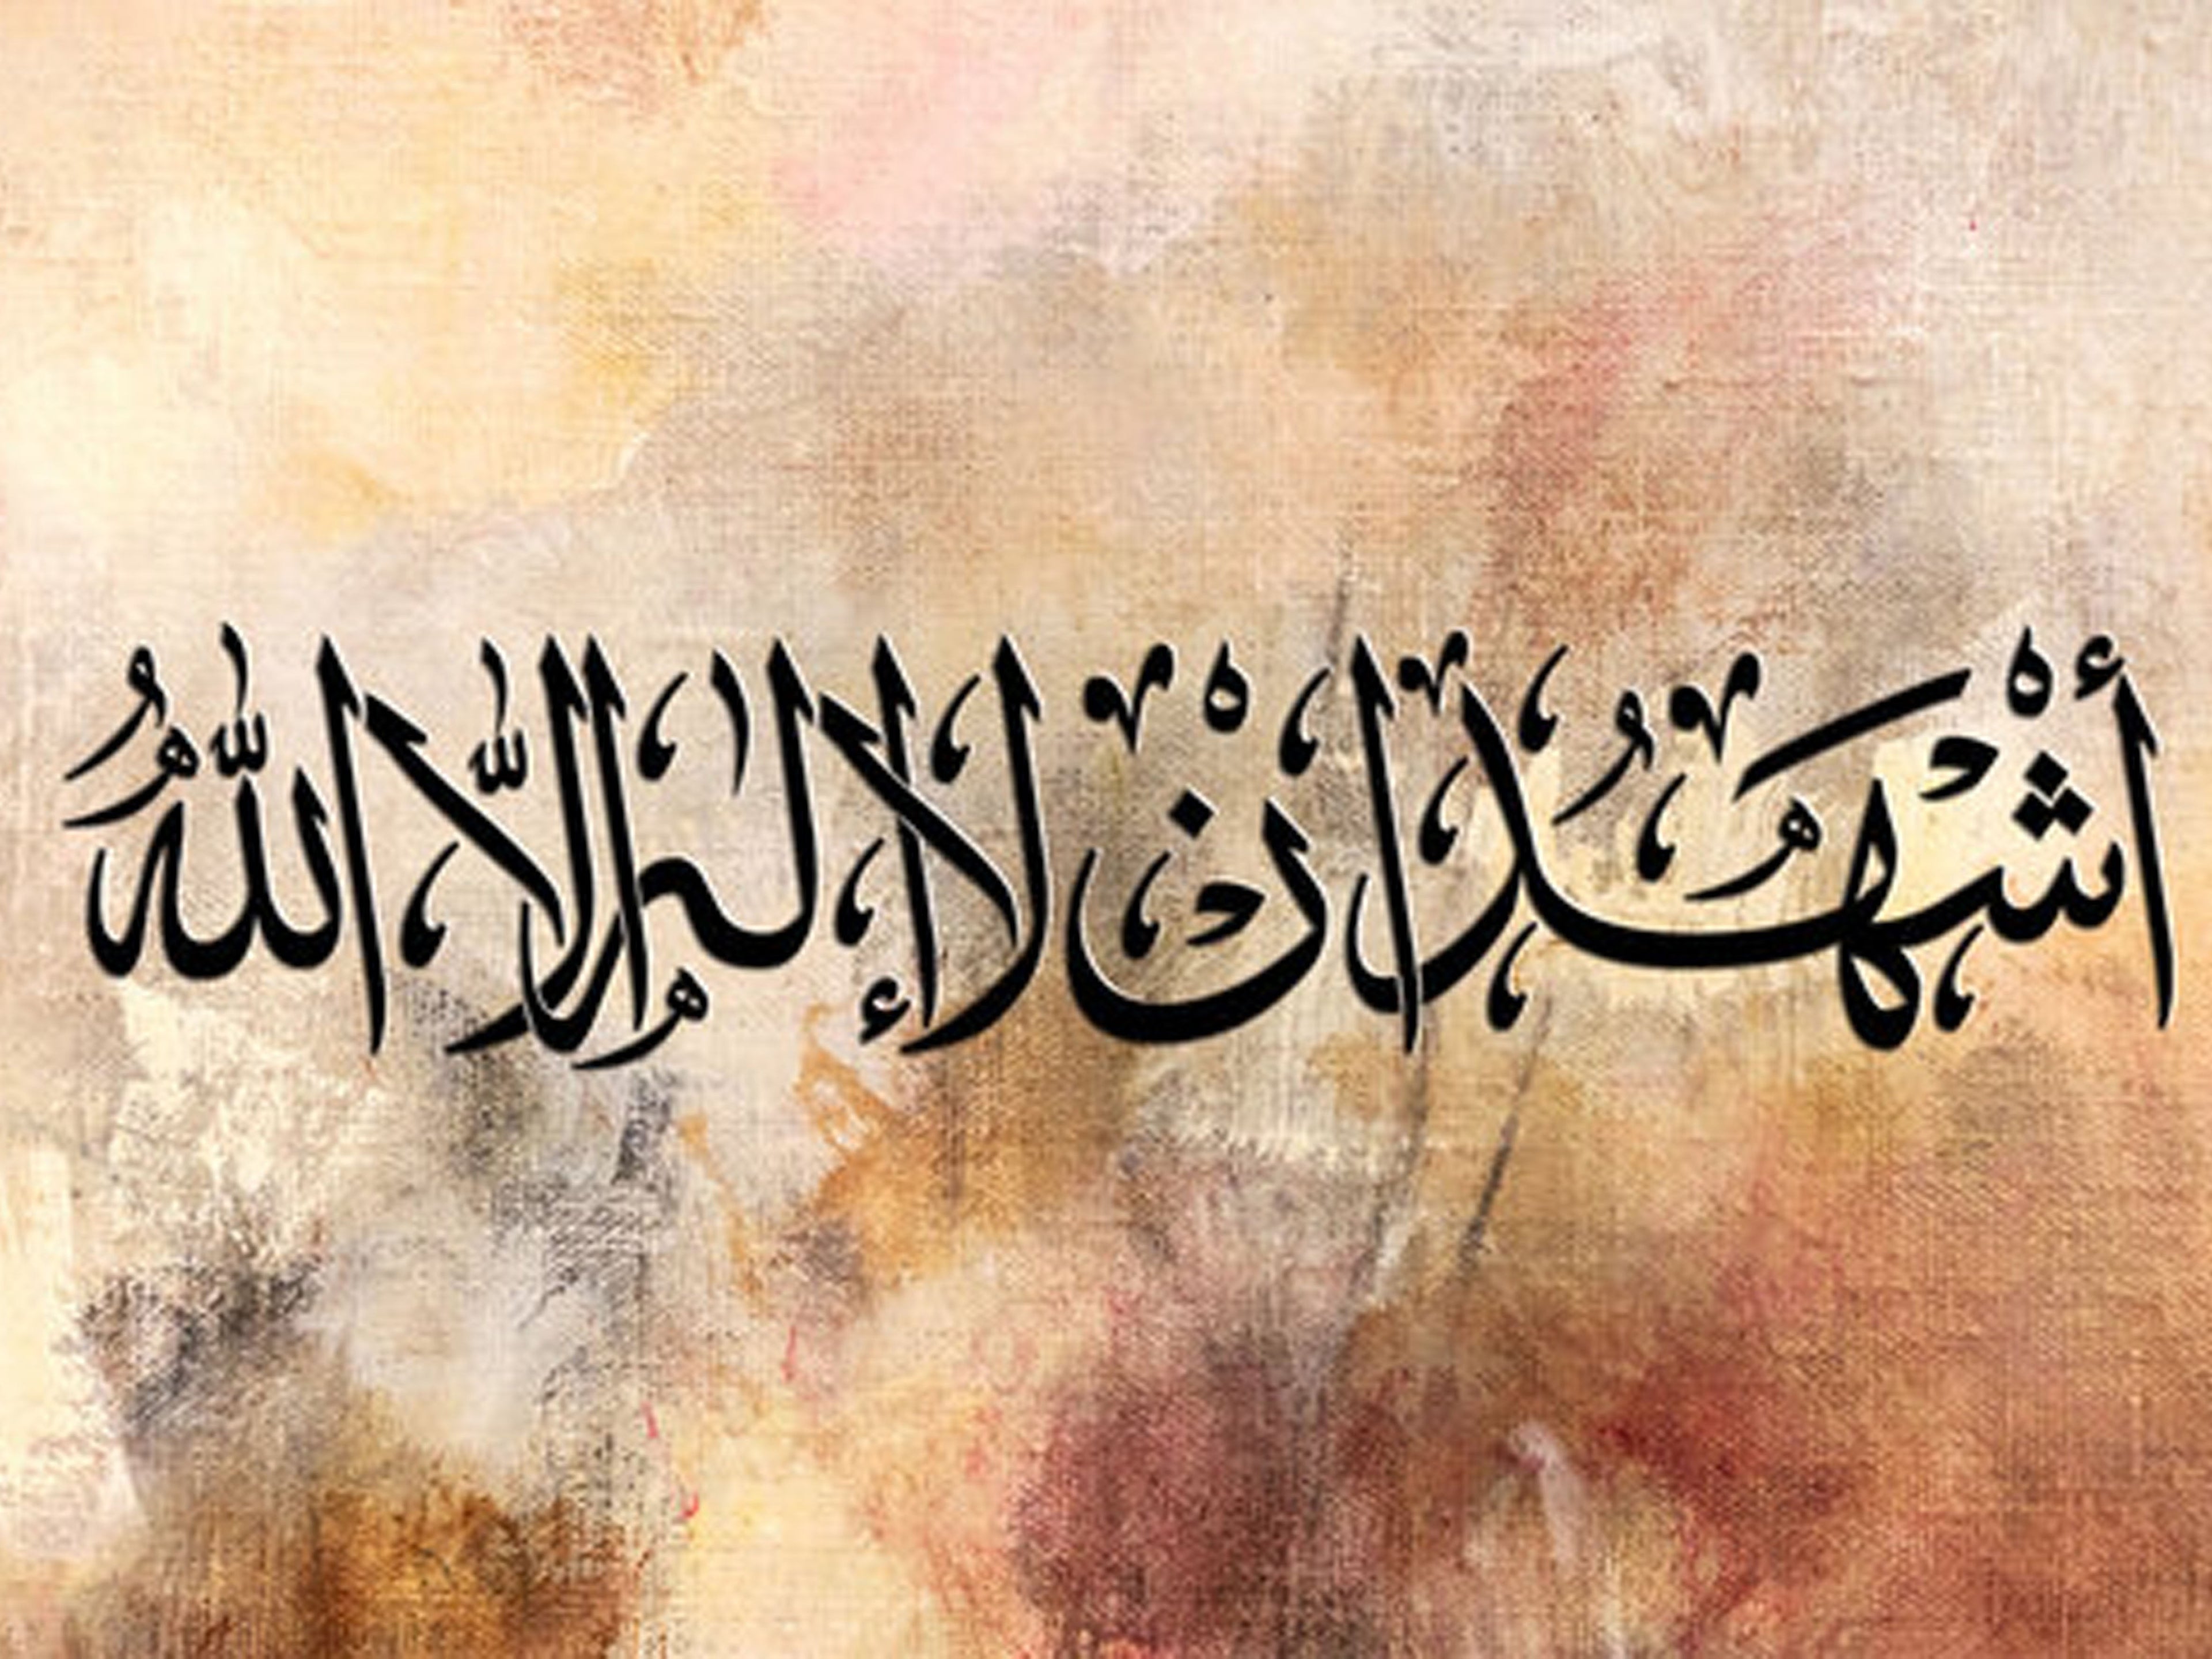 أشْهَدُ انْ لا إله إلّا اللّٰهُ